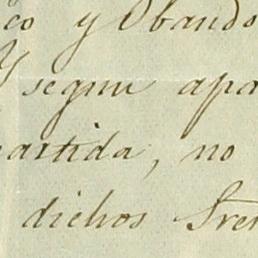 co y Obando
Y segun apa
artida, no
dichos Sres